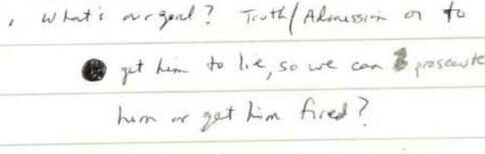 , What's our goal? Truth/Admission or to
get him to lie, so we can prosecute
him or get him fired?